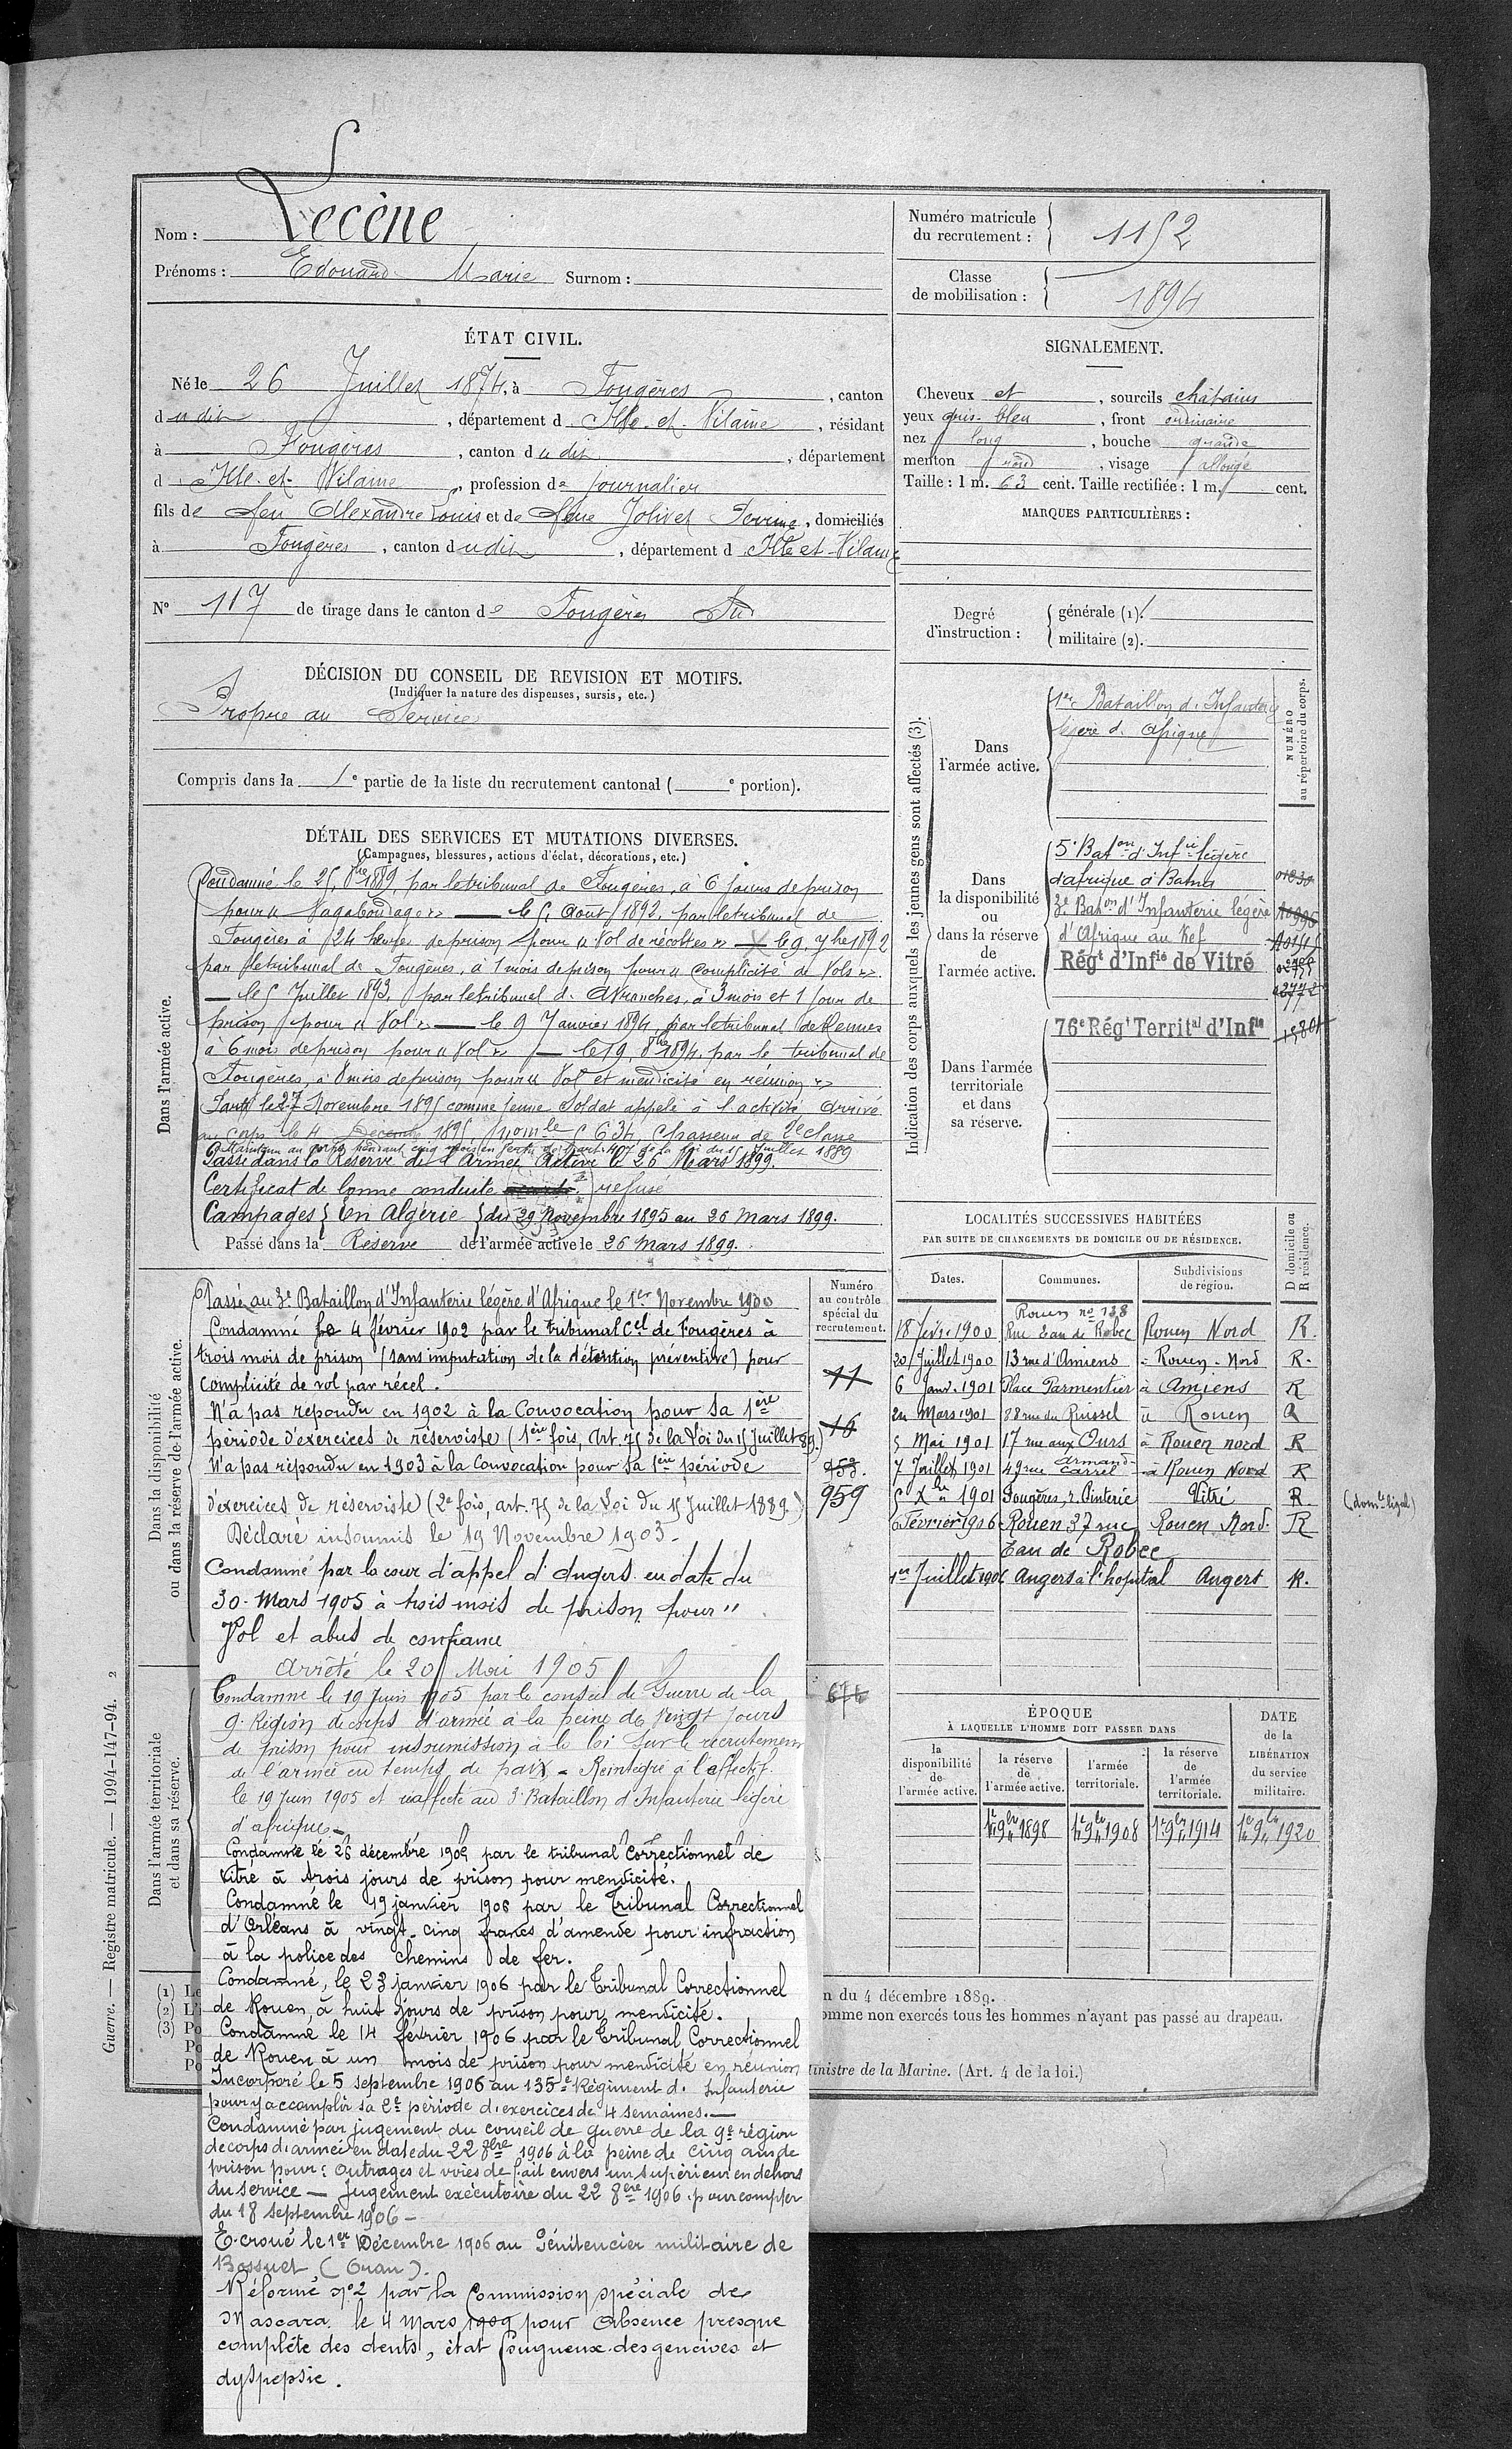 Nom : Lecène
Prénoms : Edouard Marie Surnom :
Numéro matricule
du recrutement :
1152
Classe
de mobilisation :
1894
ÉTAT CIVIL.
Né le 26 Juillet 1874, à Fougères, canton
dudit, département d Ille-et-Vilaine, résidant
à Fougères, canton dudit, département
d Ille-et-Vilaine, profession de journalier
fils de feu Alexandre Louis et de feue Jolivet Perrine, domiciliés
à Fougères, canton dudit, département d Ille et Vilaine
N° 117 de tirage dans le canton de Fougères Sud
SIGNALEMENT.
Cheveux et, sourcils châtains
yeux gris-bleu, front ordinaire
nez long, bouche grande
menton rond, visage allongé
Taille : 1 m. 63 cent. Taille rectifiée : 1 m. cent.
MARQUES PARTICULIÈRES :
Degré
d'instruction :
générale (1).
militaire (2).
DÉCISION DU CONSEIL DE REVISION ET MOTIFS.
(Indiquer la nature des dispenses, sursis, etc.)
Propre au Service
Compris dans la 1e partie de la liste du recrutement cantonal ( e portion).
DÉTAIL DES SERVICES ET MUTATIONS DIVERSES.
(Campagnes, blessures, actions d'éclat, décorations, etc.)
Dans l'armée active.
Condamné le 25 8bre 1889, par le tribunal de Fougères, à 6 jours de prison
pour « Vagabondage » — le 5 Août 1892, par le tribunal de
Fougères à 24 heures de prison pour « Vol de récoltes » — le 9 7bre 1892
par le tribunal de Fougères, à 1 mois de prison pour « complicité de Vols »
— le 5 Juillet 1893, par le tribunal d'Avranches, à 3 mois et 1 jour de
prison pour « Vol » — le 9 Janvier 1894, par le tribunal de Rennes
à 6 mois de prison pour « Vol » — le 19 8bre 1894, par le tribunal de
Fougères, à 8 mois de prison pour « Vol et mendicité en réunion »
Parti le 27 Novembre 1895 comme jeune Soldat appelé à l'activité, arrivé
au corps le 4 Décembre 1895 No mle 5634, Chasseur de 2e classe
Maintenu au corps pendant cinq mois en vertu de l'art. 47 de la loi du 15 Juillet 1889
Passé dans la Réserve de l'Armée Active le 26 Mars 1899.
Certificat de bonne conduite refusé
Campagnes } En Algérie } du 29 Novembre 1895 au 26 Mars 1899.
Passé dans la Réserve de l'armée active le 26 Mars 1899.
Indication des corps auxquels les jeunes gens sont affectés (3).
NUMÉRO
au répertoire du corps.
Dans
l'armée active.
1er Bataillon d'Infanterie
légère d'Afrique
Dans
la disponibilité
ou
dans la réserve
de
l'armée active.
5e Baton d'Infie légère
d'afrique à Batna
3e Baton d'Infanterie légère
d'Afrique au Kef
Régt d'Infie de Vitré
Dans l'armée
territoriale
et dans
sa réserve.
76e Régt Territal d'Infie
Dans la disponibilité
ou dans la réserve de l'armée active.
Passé au 3e Bataillon d'Infanterie légère d'Afrique le 1er Novembre 1900
Condamné le 4 février 1902 par le tribunal Cel de Fougères à
trois mois de prison (sans imputation de la détention préventive) pour
complicité de vol par récel.
N'a pas répondu en 1902 à la Convocation pour sa 1ère
période d'exercices de réserviste (1ère fois, Art. 75 de la Loi du 15 Juillet 89.)
N'a pas répondu en 1903 à la Convocation pour sa 1ère période
d'exercices de réserviste (2e fois, art. 75 de la Loi du 15 Juillet 1889.)
Déclaré insoumis le 19 Novembre 1903.
Condamné par la cour d'appel d'Angers en date du
30 Mars 1905 à trois mois de prison pour "
Vol et abus de confiance
Arrêté le 20 Mai 1905
Dans l'armée territoriale
et dans sa réserve.
Condamné le 19 Juin 1905 par le conseil de Guerre de la
9e Région de corps d'armée à la peine de vingt jours
de prison pour insoumission à la loi sur le recrutement
de l'armée en temps de paix - Réintégré à l'effectif
le 19 juin 1905 et réaffecté au 3e Bataillon d'Infanterie légère
d'afrique
Condamné le 26 décembre 1905 par le tribunal Correctionnel de
Vitré à trois jours de prison pour mendicité.
Condamné le 19 janvier 1906 par le Tribunal Correctionnel
d'Orléans à vingt-cinq francs d'amende pour infraction
à la police des chemins de fer.
Condamné, le 23 janvier 1906 par le Tribunal Correctionnel
de Rouen, à huit jours de prison pour mendicité.
Condamné le 14 février 1906 par le Tribunal Correctionnel
de Rouen à un mois de prison pour mendicité en réunion
Incorporé le 5 septembre 1906 au 135e Régiment d'Infanterie
pour y accomplir sa 2e période d'exercices de 4 semaines. —
Condamné par jugement du conseil de guerre de la 9e région
de corps d'armée en date du 22 8bre 1906 à la peine de cinq ans de
prison pour : outrages et voies de fait envers un supérieur en dehors
du service — Jugement exécutoire du 22 8bre 1906 pour compter
du 18 septembre 1906 —
Ecroué le 1er Décembre 1906 au Pénitencier militaire de
Bossuet (Oran).
Réformé no 2 par la Commission spéciale de
Mascara le 4 Mars 1909 pour Absence presque
complète des dents, état fongueux des gencives et
dyspepsie.
Numéro
au contrôle
spécial du
recrutement.
11
16
953.
959
674
LOCALITÉS SUCCESSIVES HABITÉES
PAR SUITE DE CHANGEMENTS DE DOMICILE OU DE RÉSIDENCE.
Dates. Communes. Subdivisions
de région. D domicile ou
R résidence.
18 Févr. 1900 Rouen no 138 Rue Eau de Robec Rouen Nord R.
20 Juillet 1900 13 rue d'Amiens - Rouen - Nord R.
6 Janv. 1901 Place Parmentier à Amiens R
24 Mars 1901 88 rue du Ruissel à Rouen R
5 Mai 1901 17 rue aux Ours à Rouen nord R
7 Juillet 1901 49 rue Armand-Carrel à Rouen Nord R
5 Xbre 1901 Fougères, r. Pinterie Vitré R (dom. légal)
6 Février 1906 Rouen 37 rue Rouen Nord. R
Eau de Robec
1er Juillet 1906 Angers à l'hopital Angers R.
ÉPOQUE
À LAQUELLE L'HOMME DOIT PASSER DANS
la
disponibilité
de
l'armée active.
la réserve
de
l'armée active.
l'armée
territoriale.
la réserve
de
l'armée
territoriale.
DATE
de la
LIBÉRATION
du service
militaire.
1er 9bre 1898 1er 9bre 1908 1er 9bre 1914 1er 9bre 1920
(1) Le
(2) L'i
(3) Po
Po
Po
n du 4 décembre 1889.
omme non exercés tous les hommes n'ayant pas passé au drapeau.
inistre de la Marine. (Art. 4 de la loi.)
Guerre. — Registre matricule. — 1994-147-94. 2